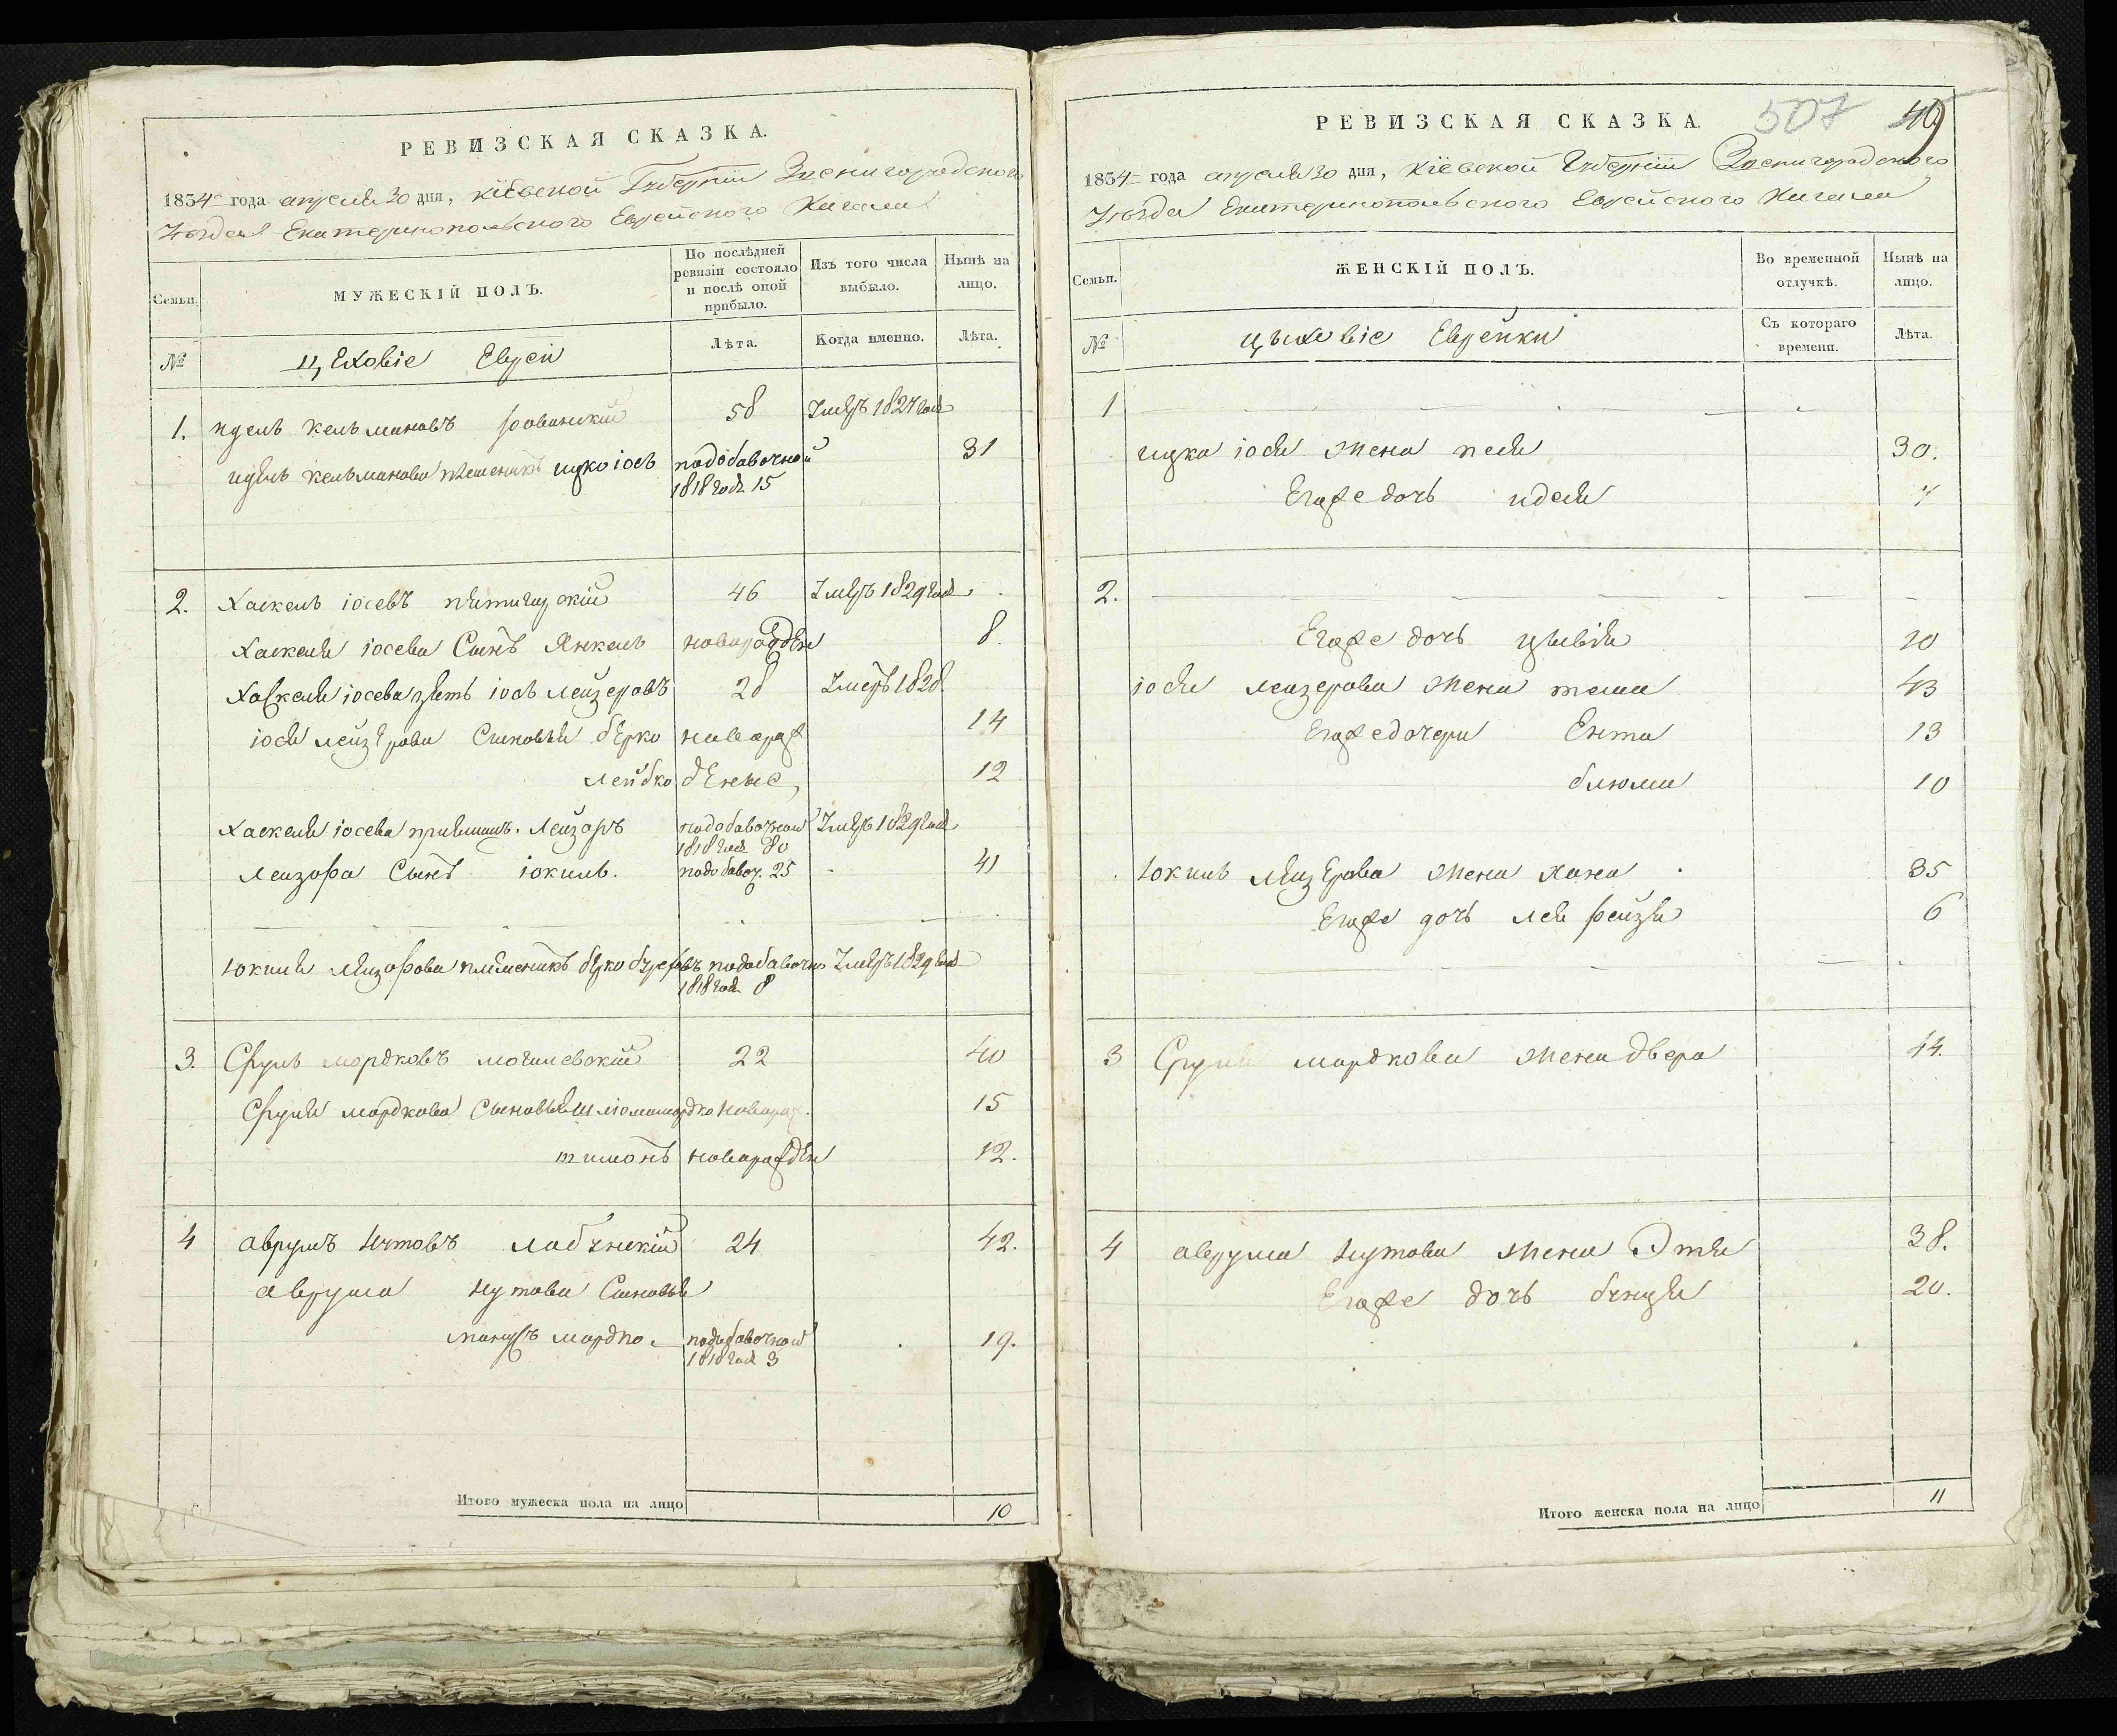 РЕВИЗСКАЯ СКАЗКА.
1834 года апреля 30 дня, Кіевской Губерніи Звенигородского
Уѣзда Екатеринопольского Еврейского Кагала
Семьи.
МУЖЕСКІЙ ПОЛЪ.
По послѣдней ревизіи состояло и послѣ оной прибыло.
Изъ того числа выбыло.
Нынѣ на лицо.
№
цеховіе Евреи
Лѣта.
Когда именно.
Лѣта.
1. идель кельмановъ 58 Умеръ 1827 года
иделя кельманова племеникъ ицко іось подобавочной 1818 года 15 31
2. Хаскель іосевъ пятигорскій 46 Умеръ 1829 года
Хаскеля іосева Сынъ Янкель новорожден 8.
Хаскеля іосева зять іось лейзеровъ 28 Умеръ 1828
іося лейзерова Сыновья берко новорож 14
лейбко денные 12
Хаскеля іосева лейзоръ подобавочной 1818 года 80 Умеръ 1829 года
лейзора Сынъ іокиль. подобавоч. 25 41
іокиля лейзорова племеникъ берко подобавочно 1818 года 8 Умеръ 1829 года
3. Сруль мордковъ могилевскій 22 40
Сруля мордкова Сыновья шліома мордко новорож. 15
новорожден 12.
4 аврумъ нутовъ лабунскій 24 42.
аврума нутова Сыновья
мордко подобавочной 1818 года 3 19.
Итого мужеска пола на лицо 10
РЕВИЗСКАЯ СКАЗКА.
507
1834 года апреля 30 дня, Кіевской Губерніи Звенигородского
Уѣзда Екатеринопольского Еврейского Кагала
Семьи.
ЖЕНСКІЙ ПОЛЪ.
Во временной отлучкѣ.
Нынѣ на лицо.
№
цеховіе Еврейки
Съ котораго времени.
Лѣта.
1
ицка іося жена песя 30.
Егоже дочь идеся 7
2.
Егоже дочь цывія 20
іося лейзерова жена 43
Егоже дочери Ента 13
блюма 10
іокиль лейзерова жена хана 35
Егоже дочь лея рейзя 6
3 Сруля мордкова жена двера 44.
4 аврума нутова жена Этя 38.
Егоже дочь бунця 20.
Итого женска пола на лицо 11